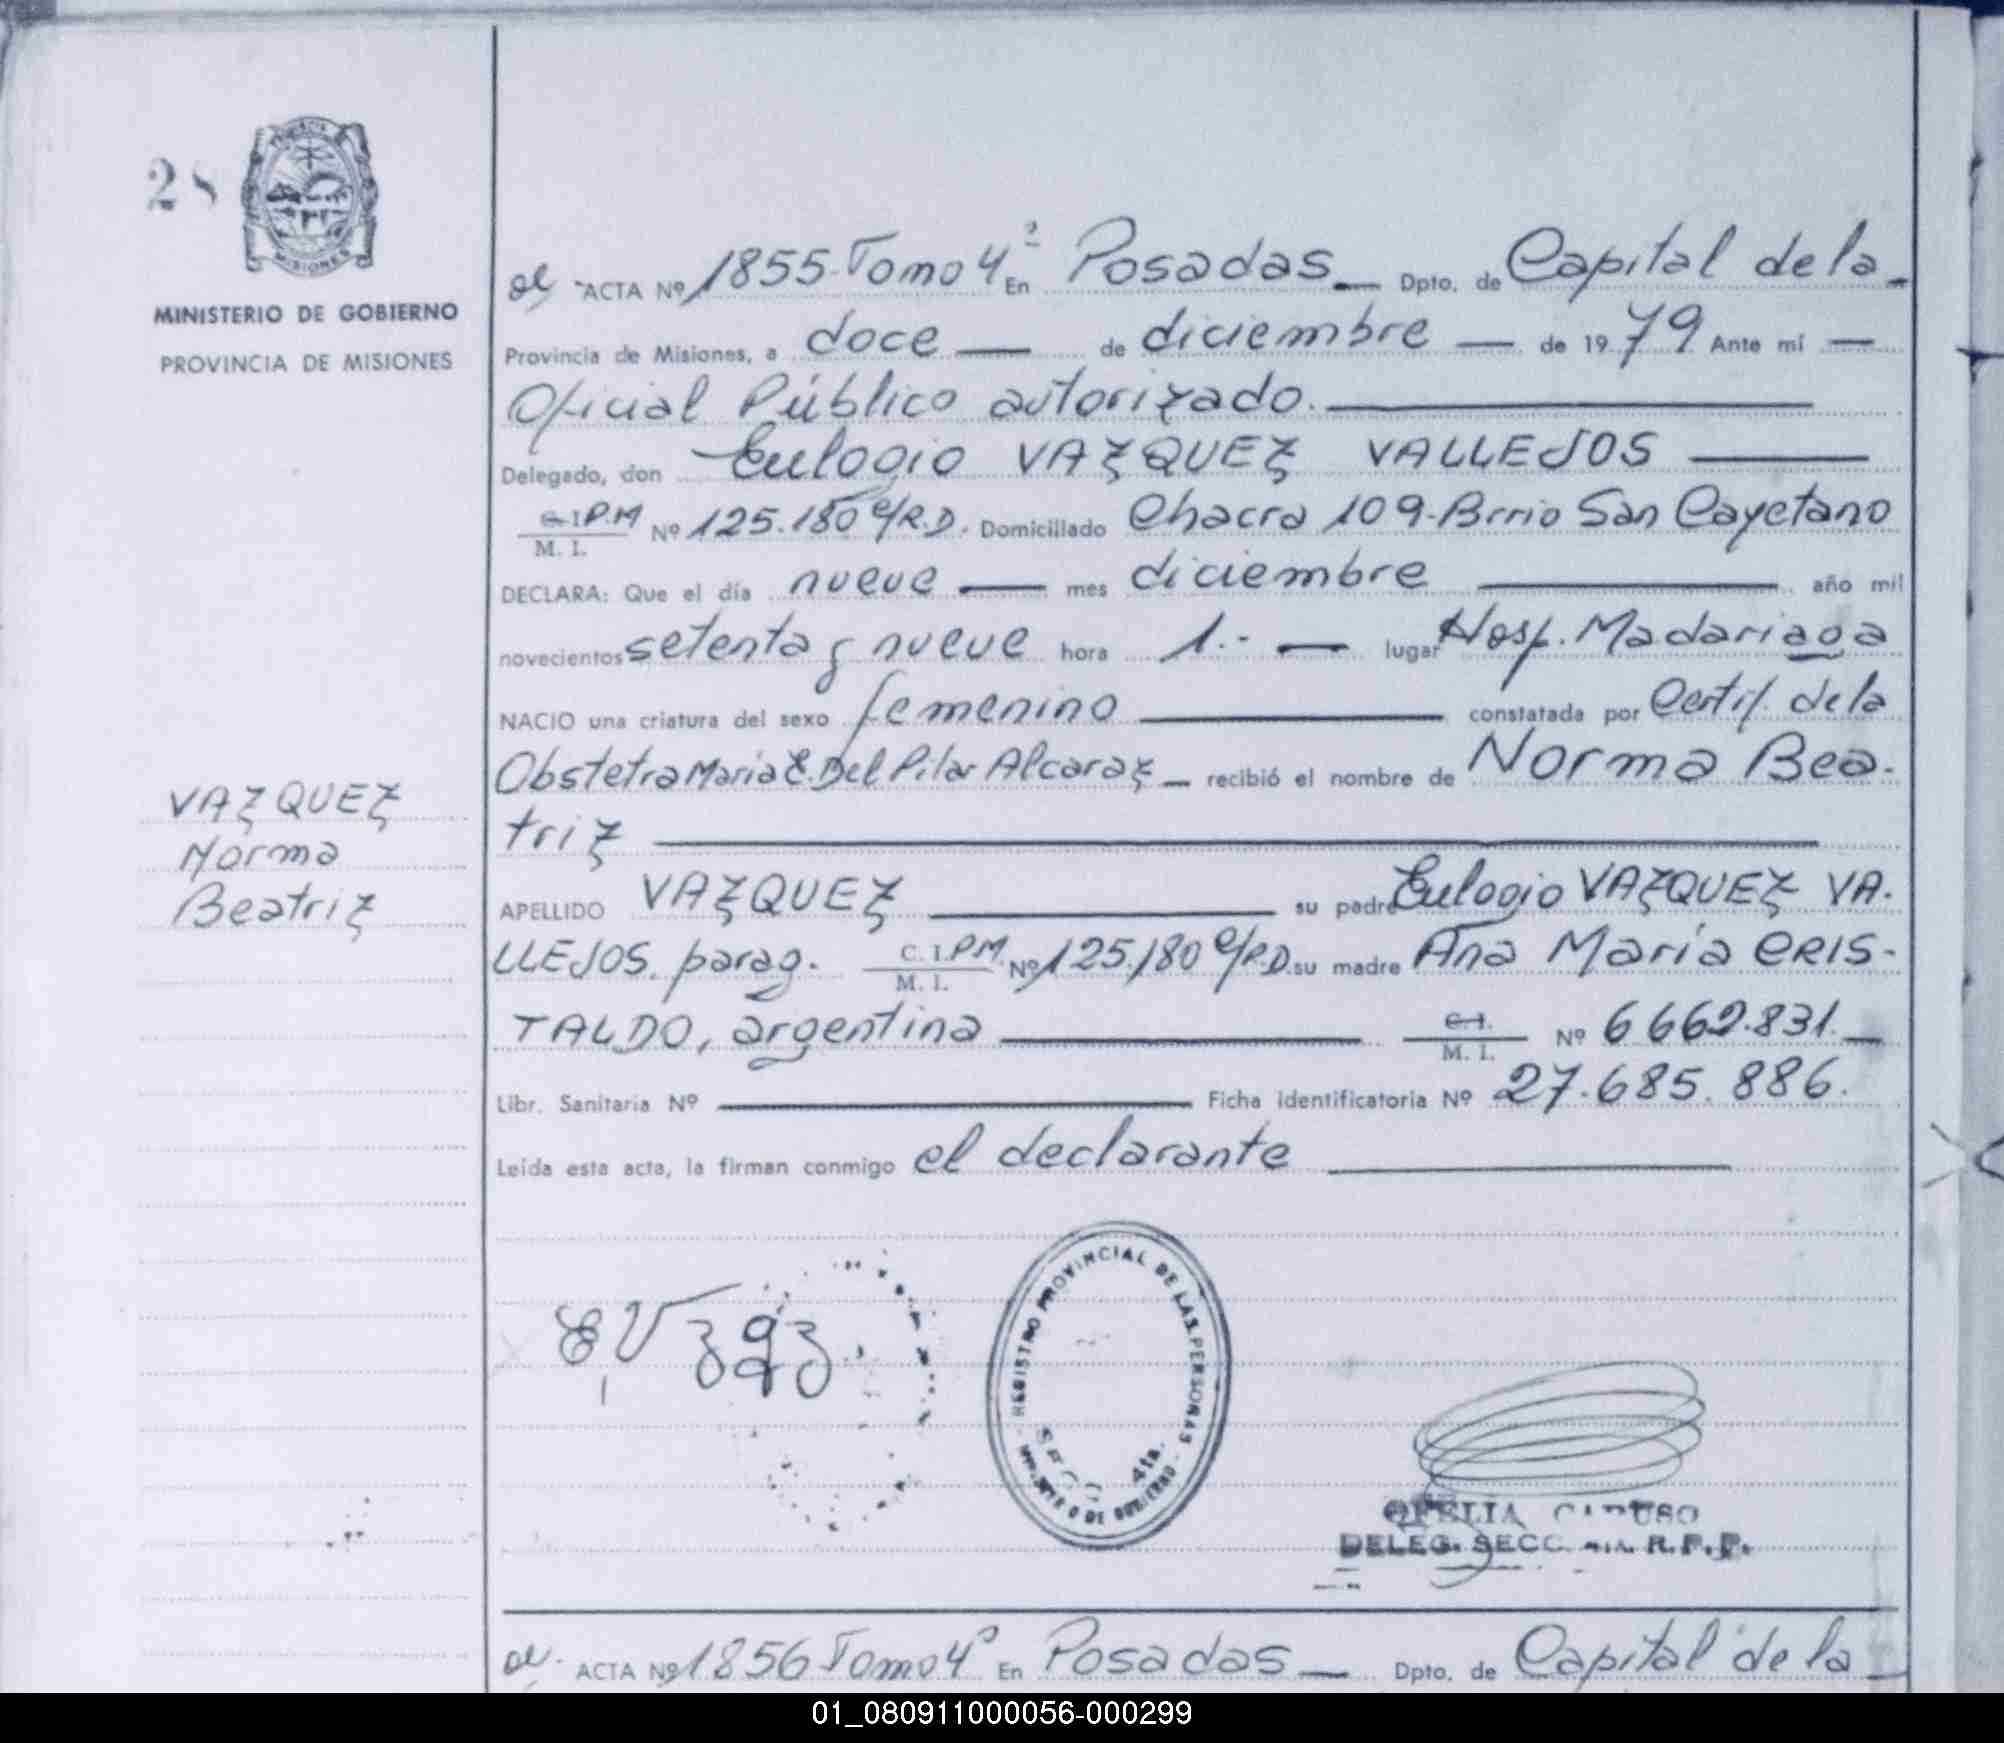 28
MISIONES
MINISTERIO DE GOBIERNO
PROVINCIA DE MISIONES
VAZQUEZ
Norma
Beatriz
ACTA Nº 1855-Tomo 4º En Posadas Dpto. de Capital de la
Provincia de Misiones, a doce de diciembre de 1979 Ante mi
Oficial Público autorizado.
Delegado, don Eulogio VAZQUEZ VALLEJOS
C.I.P.M
M. I. Nº 125.180 c/R.D. Domiciliado Chacra 109-Brrio San Cayetano
DECLARA: Que el día nueve mes diciembre año mil
novecientos setenta y nueve hora 1.- lugar Hosp. Madariaga
NACIO una criatura del sexo femenino constatada por Certif. de la
Obstetra Maria E. Del Pilar Alcaraz recibió el nombre de Norma Bea-
triz
APELLIDO VAZQUEZ su padre Eulogio VAZQUEZ VA-
LLEJOS. parag. C. I.P.M. Nº 125.180 c/R.D. su madre Ana María CRIS-
M. I.
TALDO, argentina C.I. Nº 6662.831.
M. I.
Libr. Sanitaria Nº Ficha identificatoria Nº 27.685.886.
Leída esta acta, la firman conmigo el declarante
REGISTRO PROVINCIAL DE LAS PERSONAS
4ta.
OFELIA CARUSO
DELEG. SECC. 4ta. R.P.P.
ACTA Nº 1856 Tomo 4º En Posadas Dpto. de Capital de la
01_080911000056-000299